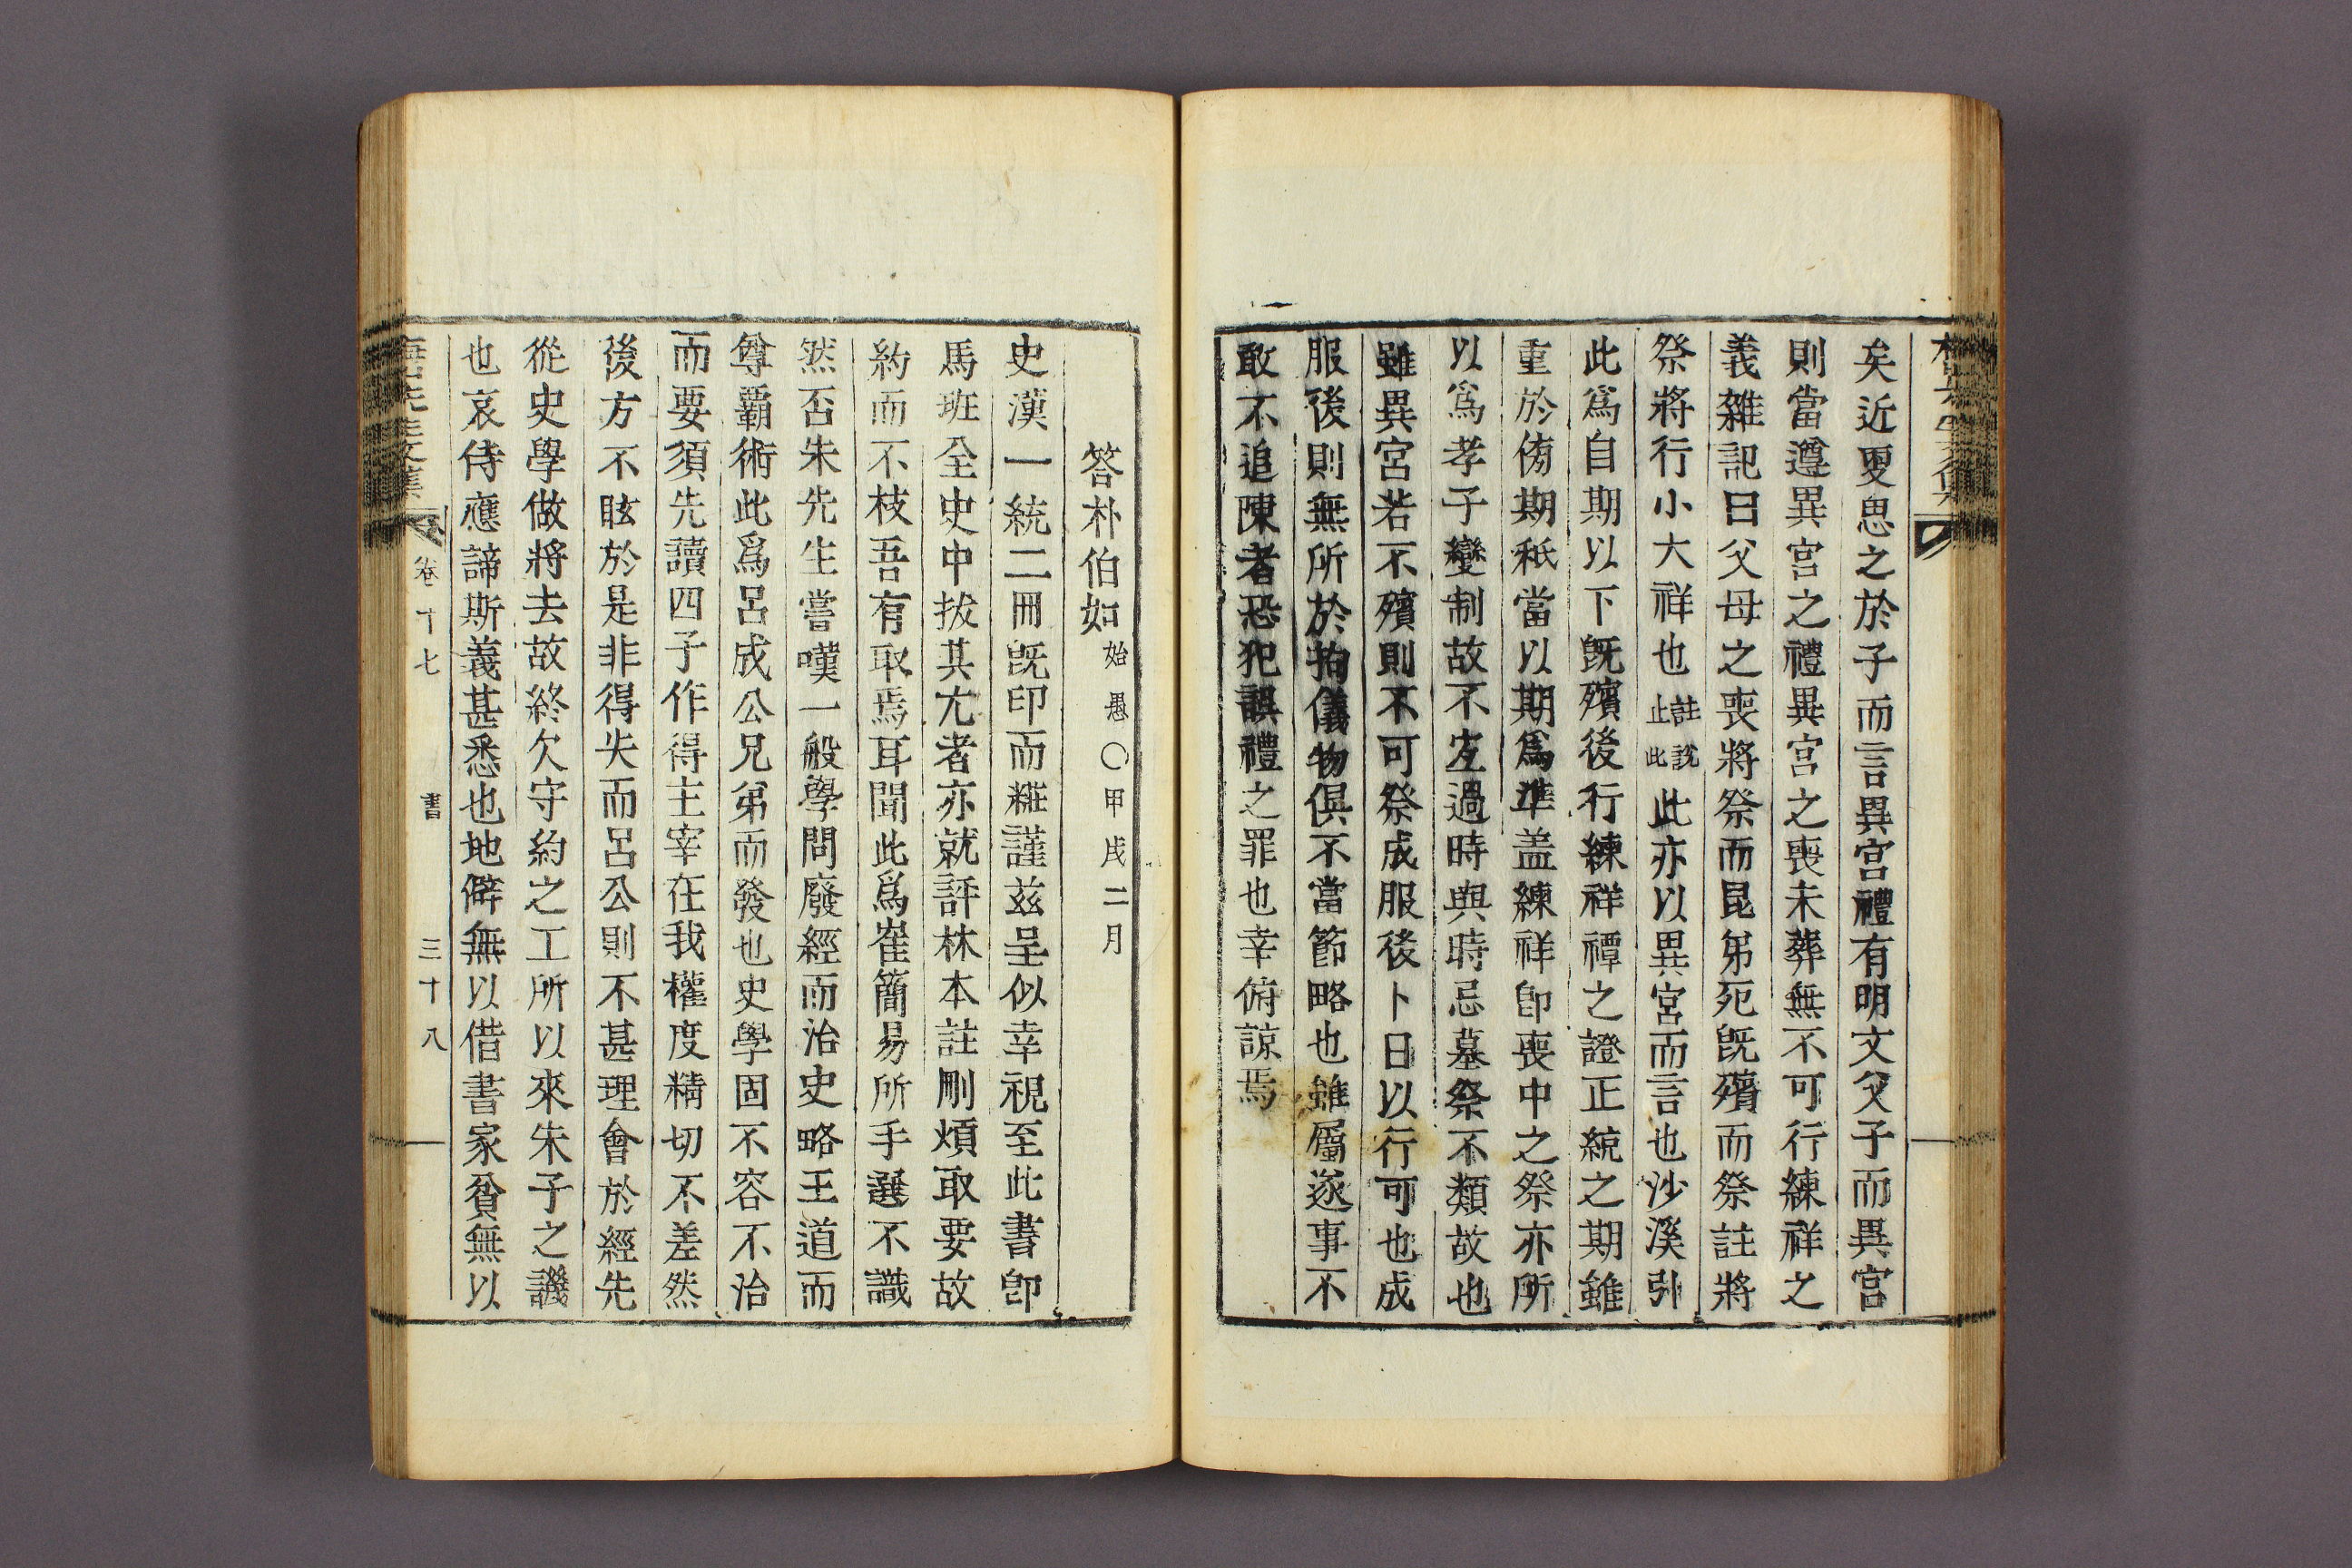 矣近更思之於子而言異宮禮有明文父子而異宮
則當遵異宮之禮異宮之喪未葬無不可行練祥之
義雜記曰父母之喪將祭而昆弟死旣殯而祭註將
祭將行小大祥也註說止此此亦以異宮而言也沙溪引
此爲自期以下旣殯後行練祥禫之證正統之期雖
重於傍期秖當以期爲準盖練祥卽喪中之祭亦所
以爲孝子變制故不宜過時與時忌墓祭不類故也
雖異宮若不殯則不可祭成服後卜日以行可也成
服後則無所於拘儀物俱不當節略也雖屬遂事不
敢不追陳者恐犯誤禮之罪也幸俯諒焉
答朴伯如始愚○甲戌二月
史漢一統二冊旣印而粧謹玆呈似幸視至此書卽
馬班全史中拔其尤者亦就評林本註刪煩取要故
約而不枝吾有取焉耳聞此爲崔簡易所手選不識
然否朱先生嘗嘆一般學問廢經而治史略王道而
尊覇術此爲呂成公兄弟而發也史學固不容不治
而要須先讀四子作得主宰在我權度精切不差然
後方不眩於是非得失而呂公則不甚理會於經先
從史學做將去故終欠守約之工所以來朱子之譏
也哀侍應諦斯義甚悉也地僻無以借書家貧無以
卷十七 書 三十八